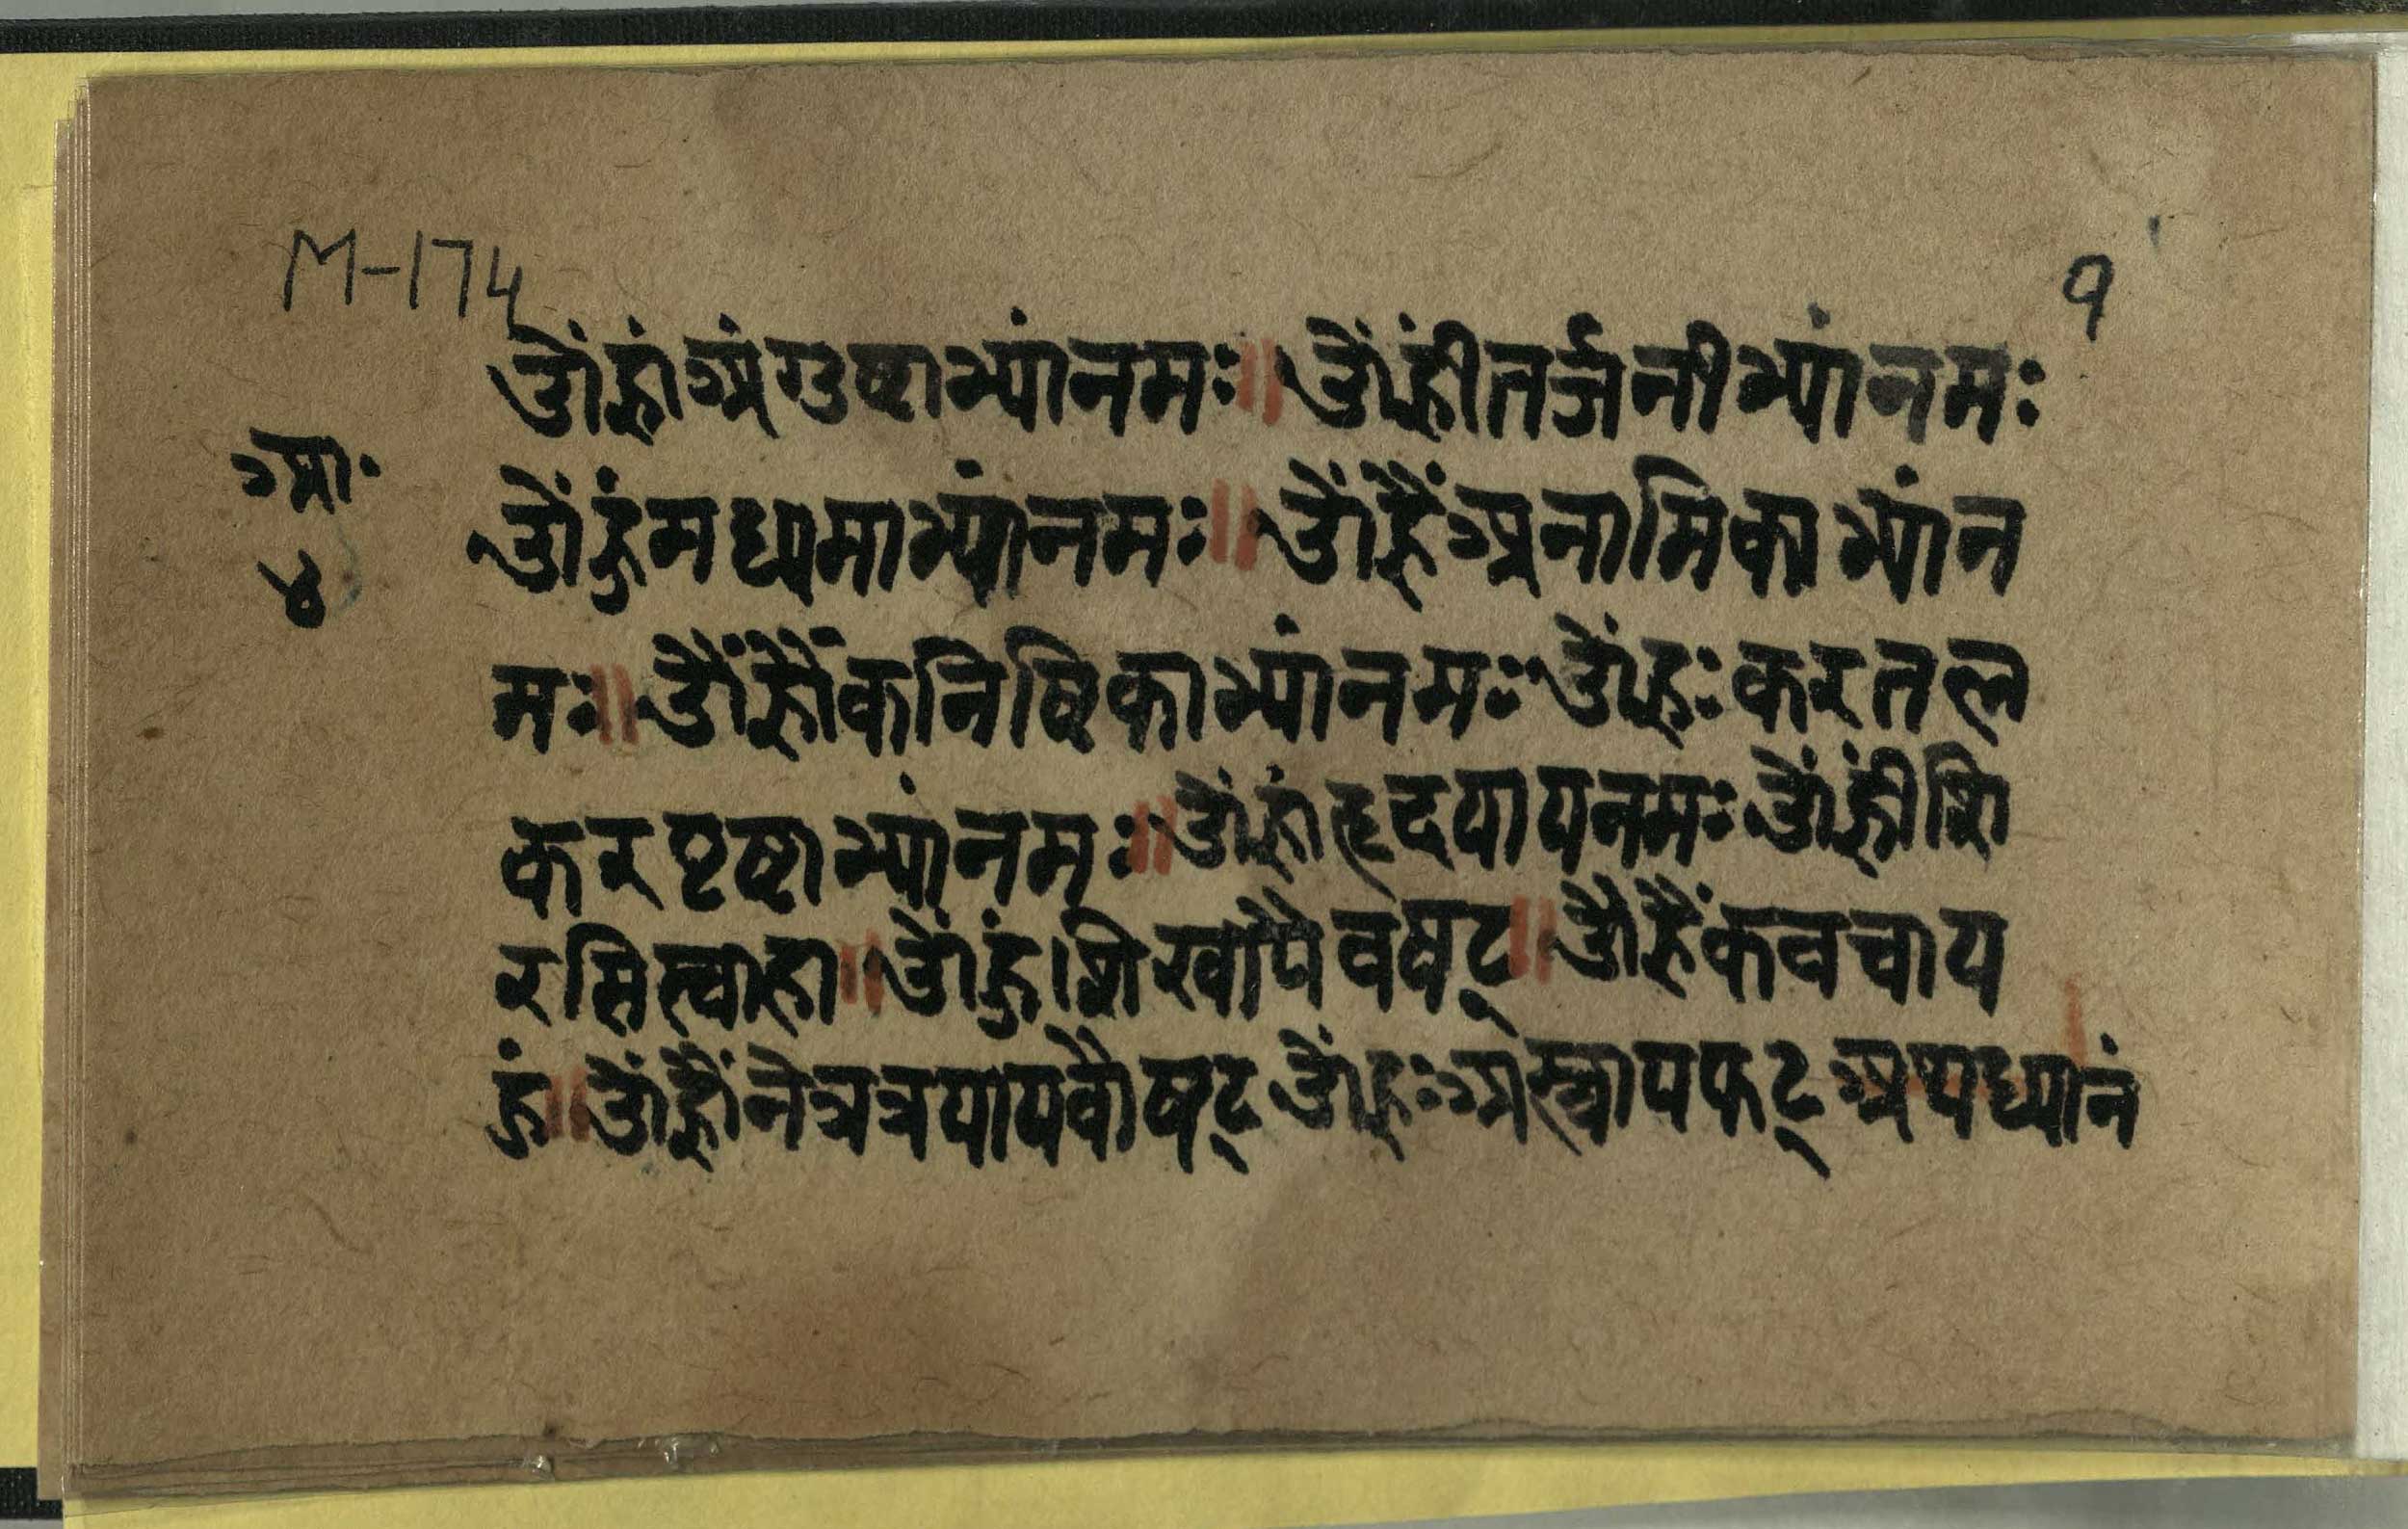 M-174
१
ओंह्रांअंगुष्ठाभ्यांनमः॥ओंह्रींतर्जनीभ्यांनमः
आ॰
४
ओंह्रुंमध्यमाभ्यांनमः॥ओंह्रैंअनामिकाभ्यांन
मः॥ओंह्रौंकनिष्ठिकाभ्यांनमःओंह्रःकरतल
करपृष्ठाभ्यांनमः॥ओंह्रांहृदयायनमःओंह्रींशि
रसिस्वाहा॥ओंह्रुंशिखायैवषट्॥ओंह्रैंकवचाय
हुं॥ओंह्रौंनेत्रत्रयायवौषट्ओंह्रःअस्त्रायफट्अथध्यानं